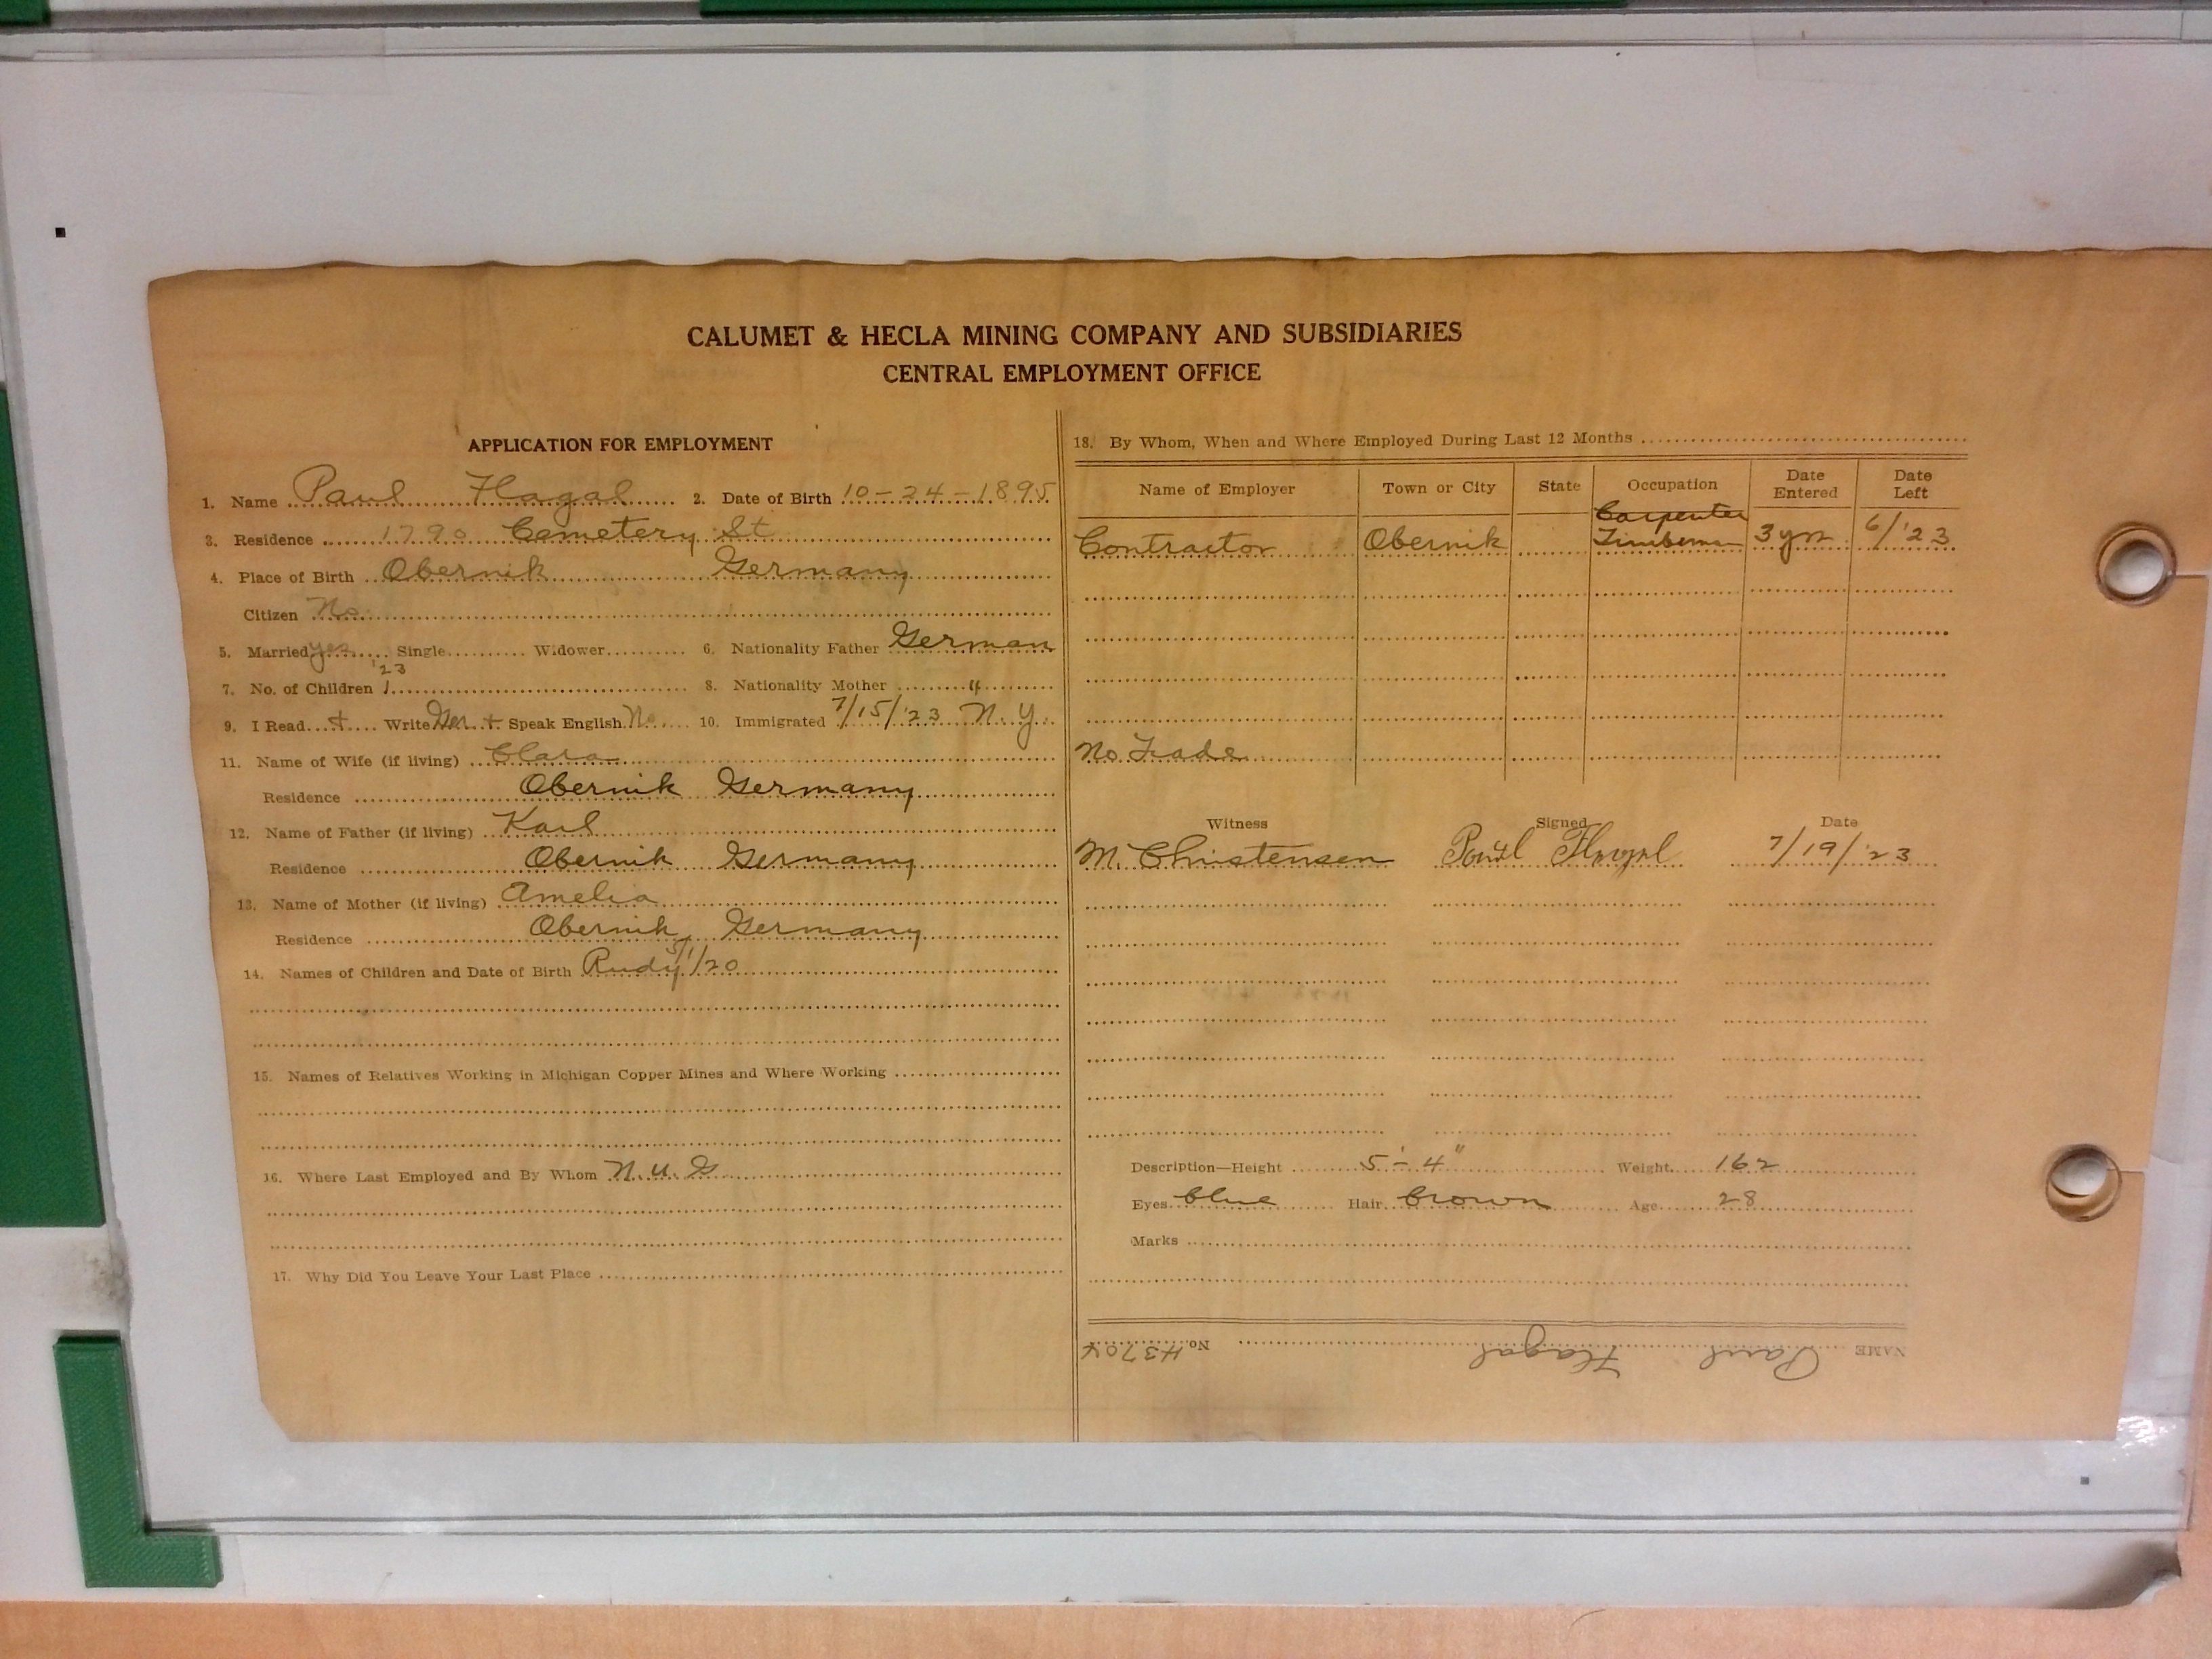 CALUMET & HECLA MINING COMPANY AND SUBSIDIARIES
CENTRAL EMPLOYMENT OFFICE
APPLICATION FOR EMPLOYMENT
1. Name Paul Flagal 2. Date of Birth 10-24-1895
3. Residence 1790 Cemetery St
4. Place of Birth Obernik Germany
Citizen No
5. Married yes Single Widower 6. Nationality Father German
'23
7. No. of Children 1 8. Nationality Mother "
9. I Read + Write Ger + Speak English No 10. Immigrated 7/15/'23 N.Y.
11. Name of Wife (if living) Clara
Residence Obernik Germany
12. Name of Father (if living) Karl
Residence Obernik Germany
13. Name of Mother (if living) Amelia
Residence Obernik Germany
14. Names of Children and Date of Birth Rudy 5/1/20
15. Names of Relatives Working in Michigan Copper Mines and Where Working
16. Where Last Employed and By Whom N.U.G.
17. Why Did You Leave Your Last Place
18. By Whom, When and Where Employed During Last 12 Months
Name of Employer Town or City State Occupation Date Entered Date Left
Carpenter
Contractor Obernik Timberman 3 yrs 6/'23
No Trade
Witness Signed Date
M. Christensen Paul Flagal 7/19/'23
Description—Height 5'-4" Weight 162
Eyes blue Hair brown Age 28
Marks
NAME Paul Flagal No.